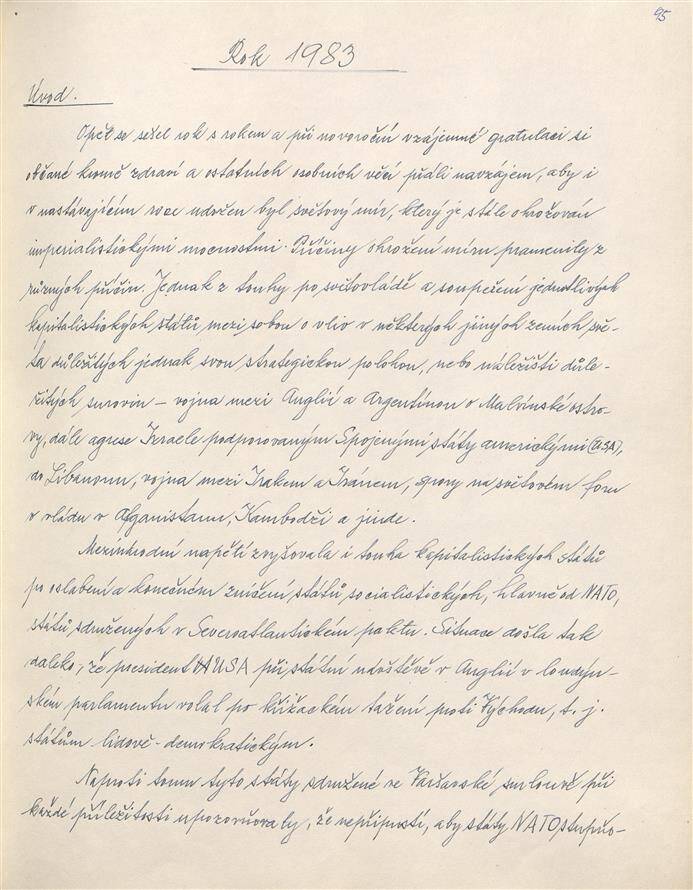 95
Rok 1983
Úvod.
Opět se sešel rok s rokem a při novoroční vzájemné gratulaci si
občané kromě zdraví a ostatních osobních věcí přáli navzájem, aby i
v nastávajícím roce udržen byl světový mír, který je stále ohrožován
imperialistickými mocnostmi. Příčiny ohrožení míru pramenily z
různých příčin. Jednak z touhy po světovládě a soupeření jednotlivých
kapitalistických států mezi sebou o vliv v některých jiných zemích svě-
ta důležitých jednak svou strategickou polohou, nebo nalezišti důle-
žitých surovin – vojna mezi Anglií a Argentinou o Malvínské ostro-
vy, dále agrese Izraele podporovaným Spojenými státy americkými (USA),
do Libanonu, vojna mezi Irakem a Iránem, spory na světovém foru
o vládu v Afganistanu, Kambodži a jinde.
Mezinárodní napětí zvyšovala i touha kapitalistických států
po oslabení a konečném zničení států socialistických, hlavně od NATO,
států sdružených v Severoatlantickém paktu. Situace došla tak
daleko, že president USA při státní návštěvě v Anglii v londýn-
ském parlamentu volal po křižáckém tažení proti Východu, t. j.
státům lidově-demokratickým.
Naproti tomu tyto státy sdružené ve Varšavské smlouvě při
každé příležitosti upozorňovaly, že nepřipustí, aby státy NATO stupňo-